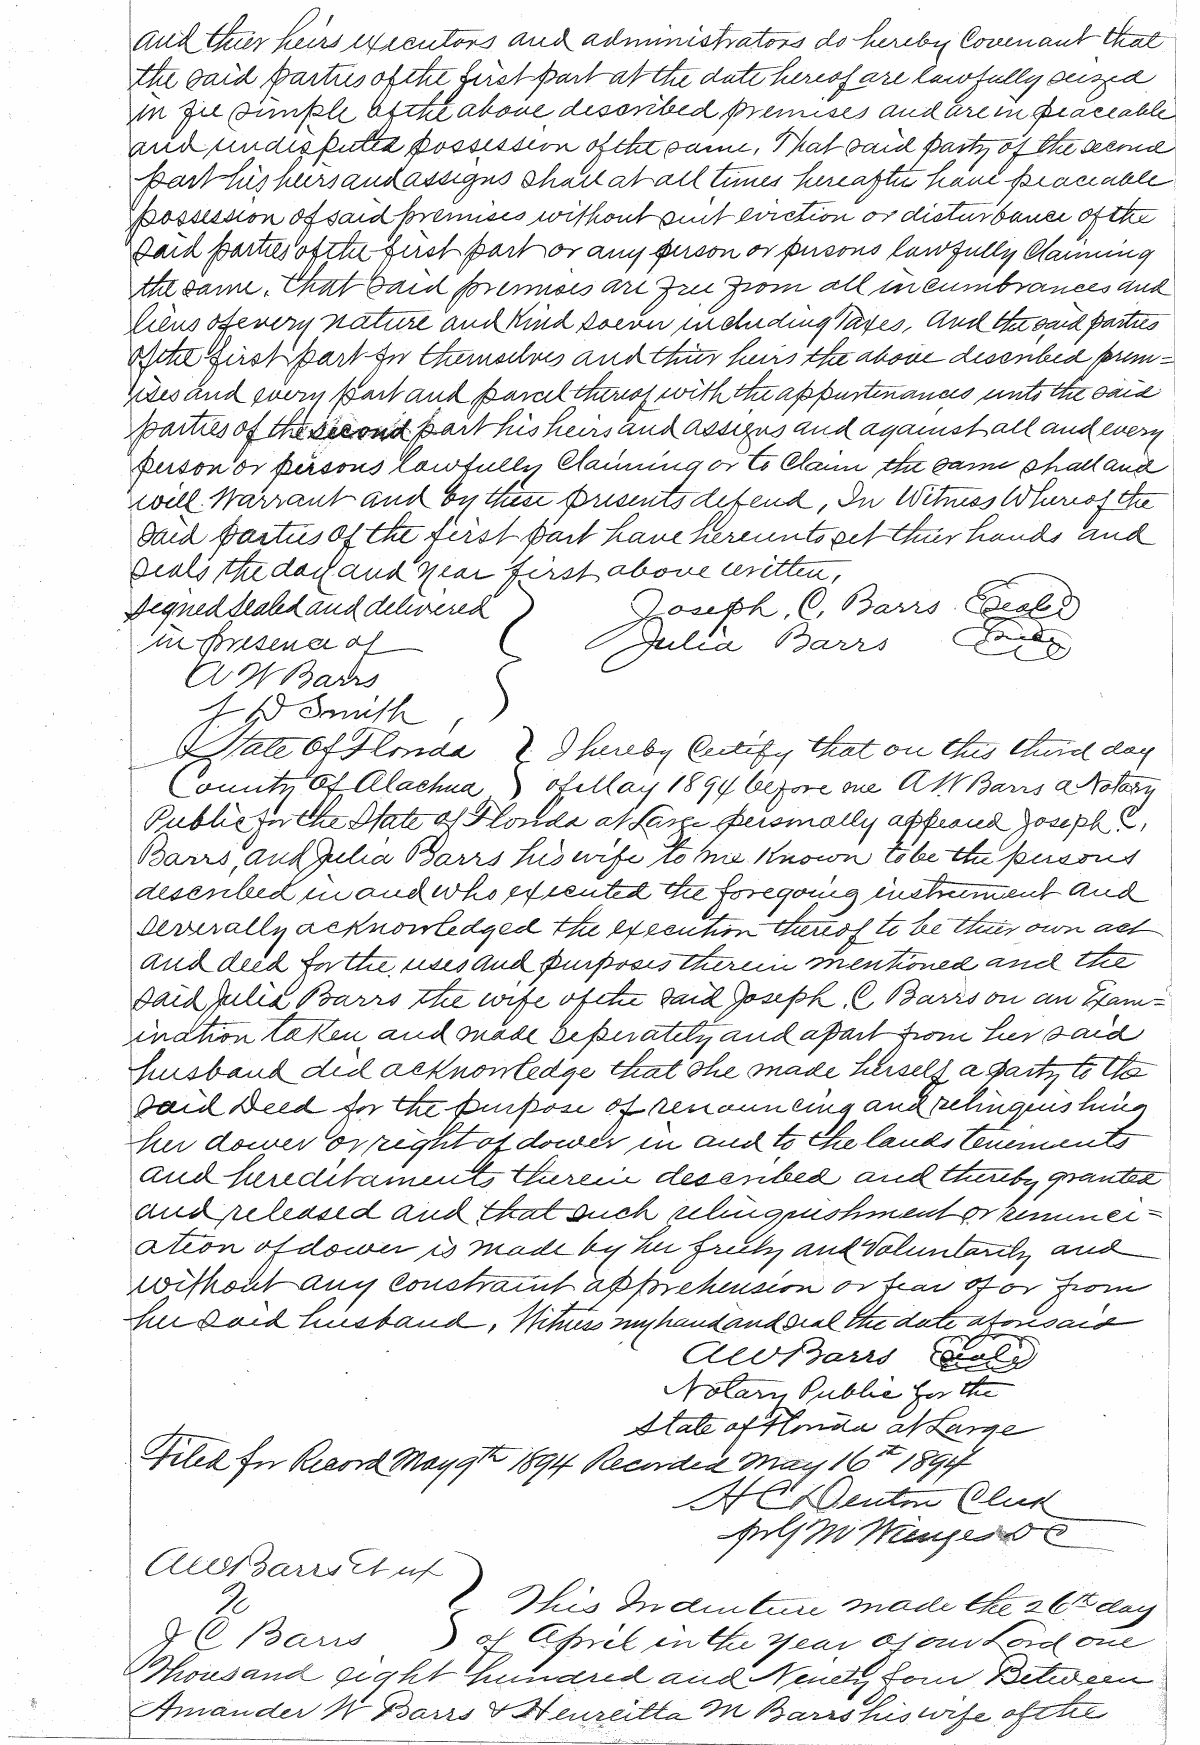 and thier heirs executors and administrators do hereby Covenant that
the said parties of the first part at the date hereof are lawfully seized
in fee simple of the above described premises and are in peaceable
and undisputed possession of the same. That said party of the second
part his heirs and assigns shall at all times hereafter have peaceable
possession of said premises without suit eviction or disturbance of the
said parties of the first part or any person or persons lawfully Claiming
the same. That said premises are free from all incumbrances and
liens of every nature and Kind soever including Taxes. And the said parties
of the first part for themselves and thier heirs the above described prem=
ises and every part and parcel thereof with the appurtenances unto the said
parties of the second part his heirs and assigns and against all and every
person or persons lawfully Claiming or to Claim the same shall and
will Warrant and by these presents defend, In Witness Whereof the
said parties of the first part have hereunto set thier hands and
seals the day and year first above written,
Signed sealed and delivered } Joseph. C. Barrs (Seal)
in presence of Julia Barrs (Seal)
A W Barrs
J D Smith
State Of Florida } I hereby Certify that on this third day
County Of Alachua } of May 1894 before me A W Barrs a Notary
Public for the State of Florida at Large personally appeard Joseph C.
Barrs, and Julia Barrs his wife to me Known to be the persons
described in and who executed the foregoing instrument and
severally acknowledged the execution thereof to be thier own act
and deed for the uses and purposes therein mentioned and the
said Julia Barrs the wife of the said Joseph. C Barrs on an Exam=
ination taken and made seperately and apart from her said
husband did acknowledge that she made herself a party to the
said Deed for the purpose of renouncing and relinquishing
her dower or right of dower in and to the lands tenements
and hereditaments therein described and thereby granted
and released and that such relinquishment or renunci=
ation of dower is made by her freely and Voluntarily and
without any constraint apprehension or fear of or from
her said husband. Witness my hand and seal the date aforesaid
A W Barrs (Seal)
Notary Public for the
State of Florida at Large
Filed for Record May 9th 1894 Recorded May 16th 1894
H C Denton Clerk
D C
A W Barrs Et ux
To } This Indenture made the 26th day
J C Barrs } of April in the year of our Lord one
Thousand eight hundred and Ninety four Between
Amander W Barrs & Henreitta M Barrs his wife of the